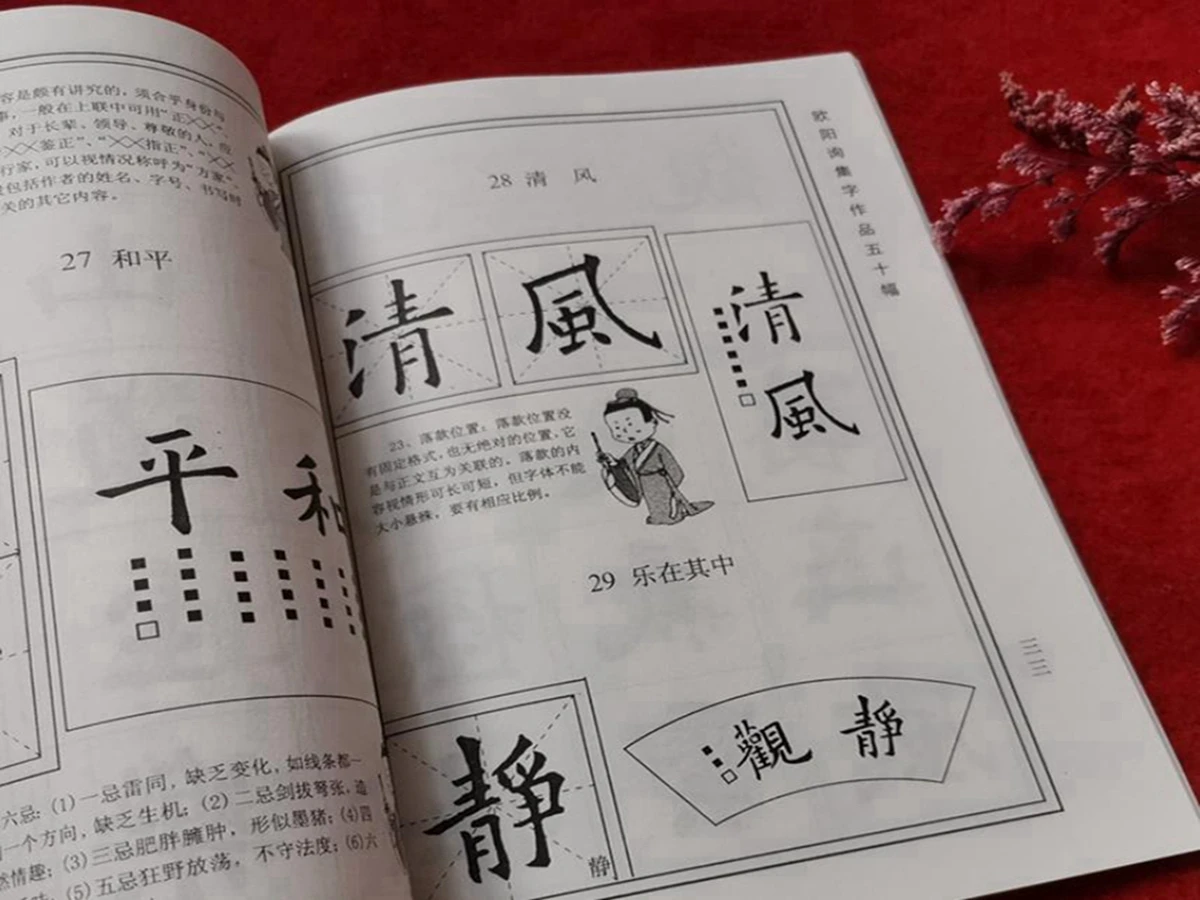 容是颇有讲究的，须合乎身份与
事，一般在上联中可用“正××”、
对于长辈、领导、尊敬的人，应
“××鉴正”、“××指正”、“××
行家，可以视情况称呼为“方家”，
包括作者的姓名、字号、书写时
关的其它内容。
27 和平
平 和
六忌：(1)一忌雷同，缺乏变化，如线条都一
一个方向，缺乏生机；(2)二忌剑拔弩张，造
然情趣；(3)三忌肥胖臃肿，形似墨猪；(4)四
(5)五忌狂野放荡，不守法度；(6)六
28 清 风
清 風
清
風
23、落款位置：落款位置没
有固定格式，也无绝对的位置，它
是与正文互为关联的。落款的内
容视情形可长可短，但字体不能
大小悬殊，要有相应比例。
29 乐在其中
靜
静
觀 靜
欧阳询集字作品五十幅
三三